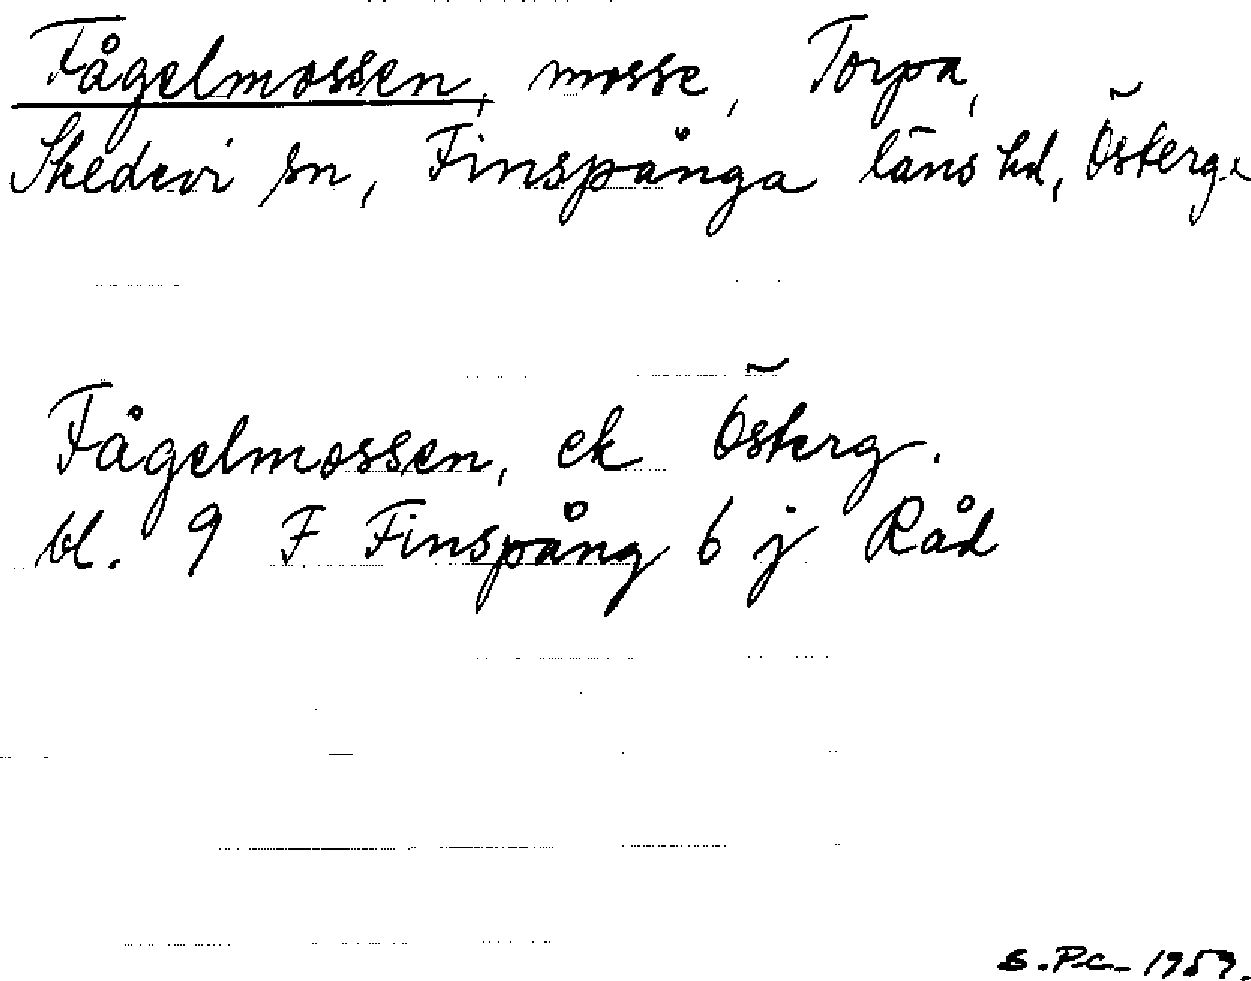 Fågelmossen, mosse, Torpa,
Skedevi sn, Finspånga läns hd, Österg.
Fågelmossen, ek Österg.
bl. 9 F Finspång 6 j Råd
S.P.C. 1959.